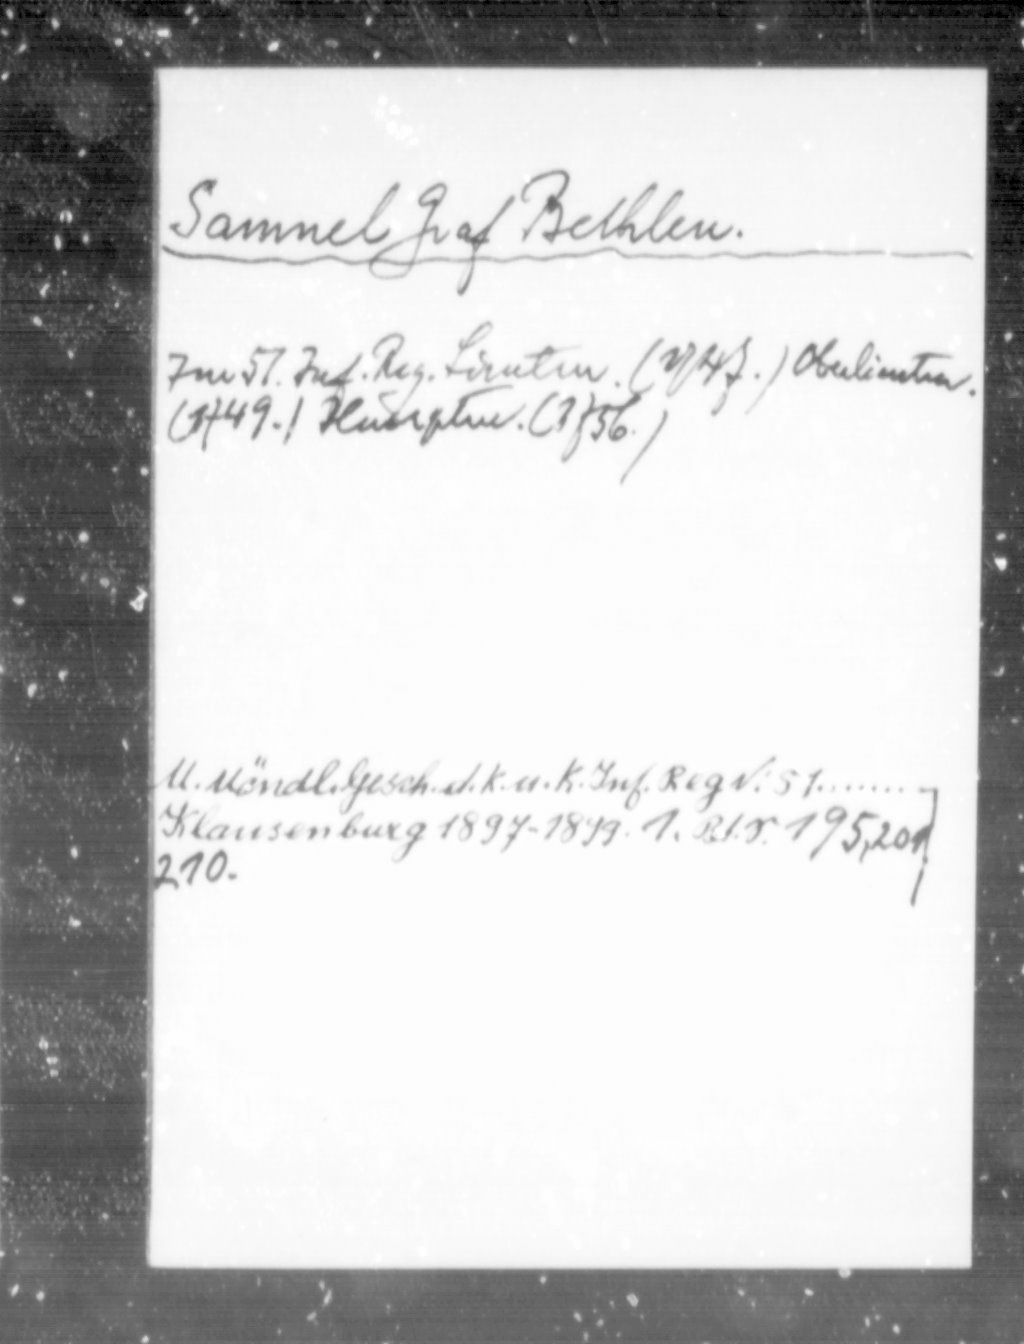 Samuel Graf Bethlen.
Im 51. Inf. Reg. Lieutn. (1747.) Oberlieutn.
(1749.) Hauptm. (1756.)
M. Möndl. Gesch. d. k. u. k. Inf. Reg N: 51.......
Klausenburg 1897-1899. 1. Bd. S. 195,201
210.